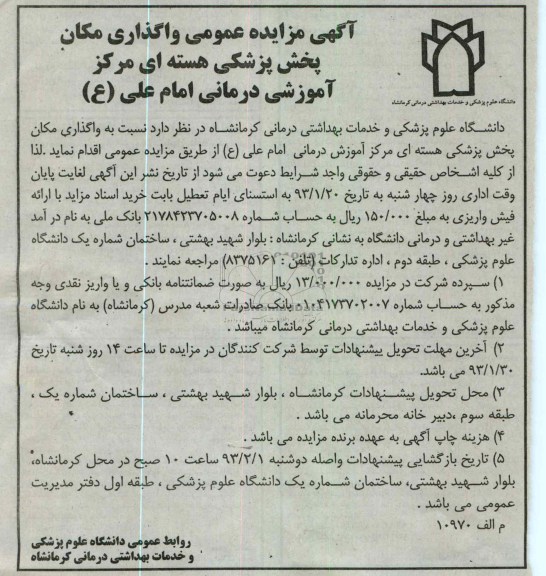 آگهی مزایده عمومی واگذاری مکان
پخش پزشکی هسته ای مرکز
آموزشی درمانی امام علی (ع)
دانشگاه علوم پزشکی و خدمات بهداشتی درمانی کرمانشاه
دانشگاه علوم پزشکی و خدمات بهداشتی درمانی کرمانشاه در نظر دارد نسبت به واگذاری مکان
پخش پزشکی هسته ای مرکز آموزش درمانی امام علی (ع) از طریق مزایده عمومی اقدام نماید .لذا
از کلیه اشخاص حقیقی و حقوقی واجد شرایط دعوت می شود از تاریخ نشر این آگهی لغایت پایان
وقت اداری روز چهار شنبه به تاریخ ۹۳/۱/۲۰ به استسنای ایام تعطیل بابت خرید اسناد مزاید با ارائه
فیش واریزی به مبلغ ۱۵۰/۰۰۰ ریال به حساب شماره ۲۱۷۸۴۲۳۷۰۵۰۰۸ بانک ملی به نام در آمد
غیر بهداشتی و درمانی دانشگاه به نشانی کرمانشاه : بلوار شهید بهشتی ، ساختمان شماره یک دانشگاه
علوم پزشکی ، طبقه دوم ، اداره تدارکات (تلفن : ۸۳۷۵۱۶۱) مراجعه نمایند .
۱) سپرده شرکت در مزایده ۱۳/۰۰۰/۰۰۰ ریال به صورت ضمانتنامه بانکی و یا واریز نقدی وجه
مذکور به حساب شماره ۰۱۰۴۱۷۳۷۰۲۰۰۷ بانک صادرات شعبه مدرس (کرمانشاه) به نام دانشگاه
علوم پزشکی و خدمات بهداشتی درمانی کرمانشاه میباشد .
۲) آخرین مهلت تحویل پیشنهادات توسط شرکت کنندگان در مزایده تا ساعت ۱۴ روز شنبه تاریخ
۹۳/۱/۳۰ می باشد.
۳) محل تحویل پیشنهادات کرمانشاه ، بلوار شهید بهشتی ، ساختمان شماره یک ،
طبقه سوم ،دبیر خانه محرمانه می باشد .
۴) هزینه چاپ آگهی به عهده برنده مزایده می باشد .
۵) تاریخ بازگشایی پیشنهادات واصله دوشنبه ۹۳/۲/۱ ساعت ۱۰ صبح در محل کرمانشاه،
بلوار شهید بهشتی، ساختمان شماره یک دانشگاه علوم پزشکی ، طبقه اول دفتر مدیریت
عمومی می باشد .
م الف ۱۰۹۷۰
روابط عمومی دانشگاه علوم پزشکی
و خدمات بهداشتی درمانی کرمانشاه